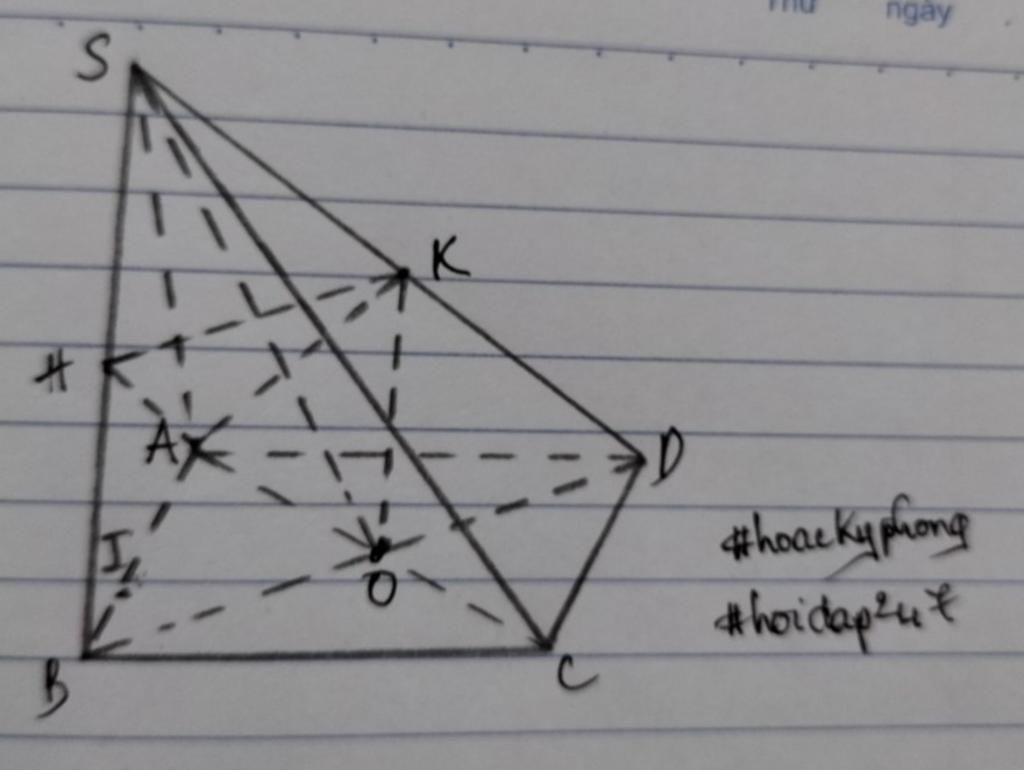 Thứ ngày
S
K
H
A
D
I
O
B
C
#hoaekyphong
#hoidap247